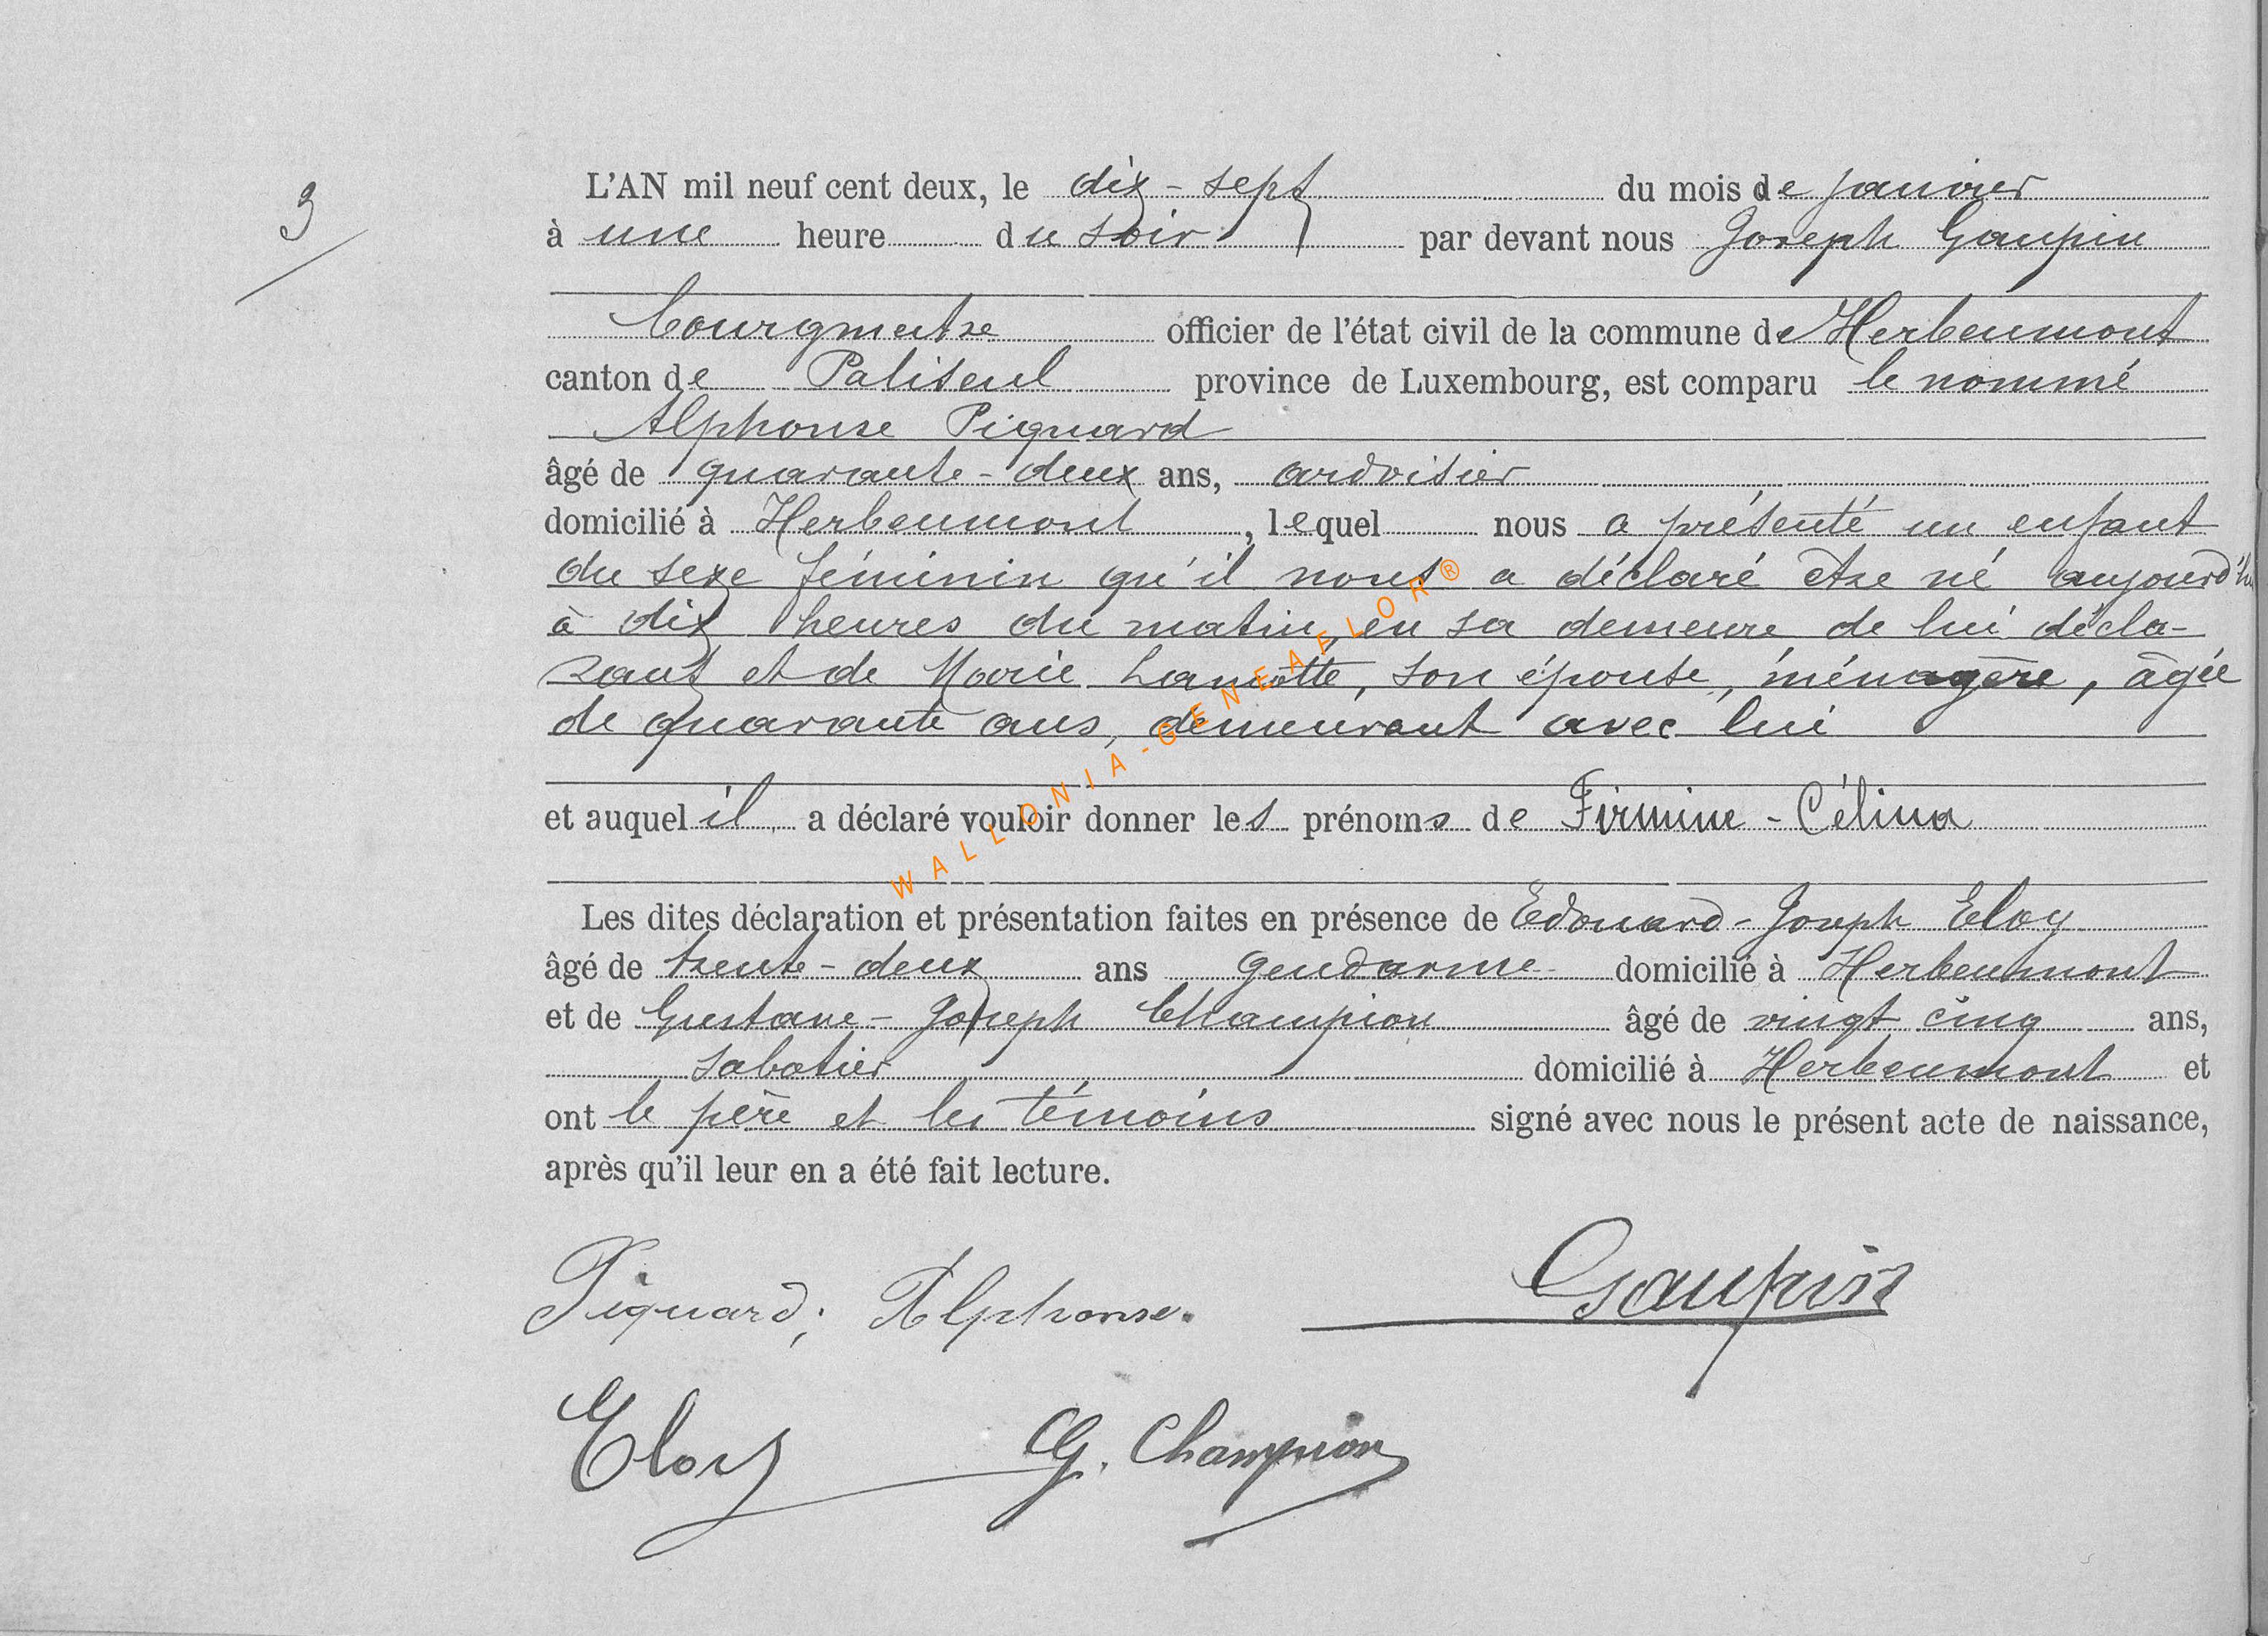 3
L'AN mil neuf cent deux, le dix-sept du mois de janvier
à une heure du soir par devant nous Joseph Gaupin
bourgmestre officier de l'état civil de la commune de Herbeumont
canton de Paliseul province de Luxembourg, est comparu le nommé
Alphonse Piquard
âgé de quarante-deux ans, ardoisier
domicilié à Herbeumont, lequel nous a présenté un enfant
du sexe féminin qu'il nous a déclaré être né aujourd'hui
à dix heures du matin, en sa demeure de lui décla-
rant et de Marie Lamotte, son épouse, ménagère, âgée
de quarante ans, demeurant avec lui
et auquel il a déclaré vouloir donner les prénoms de Firmine-Célina
Les dites déclaration et présentation faites en présence de Edouard-Joseph Eloy
âgé de trente-deux ans gendarme domicilié à Herbeumont
et de Gustave-Joseph Champion âgé de vingt cinq ans,
sabotier domicilié à Herbeumont et
ont le père et les témoins signé avec nous le présent acte de naissance,
après qu'il leur en a été fait lecture.
Piquard; Alphonse. Gaupin
Eloy G. Champion
WALLONIA-GENEAELOR®